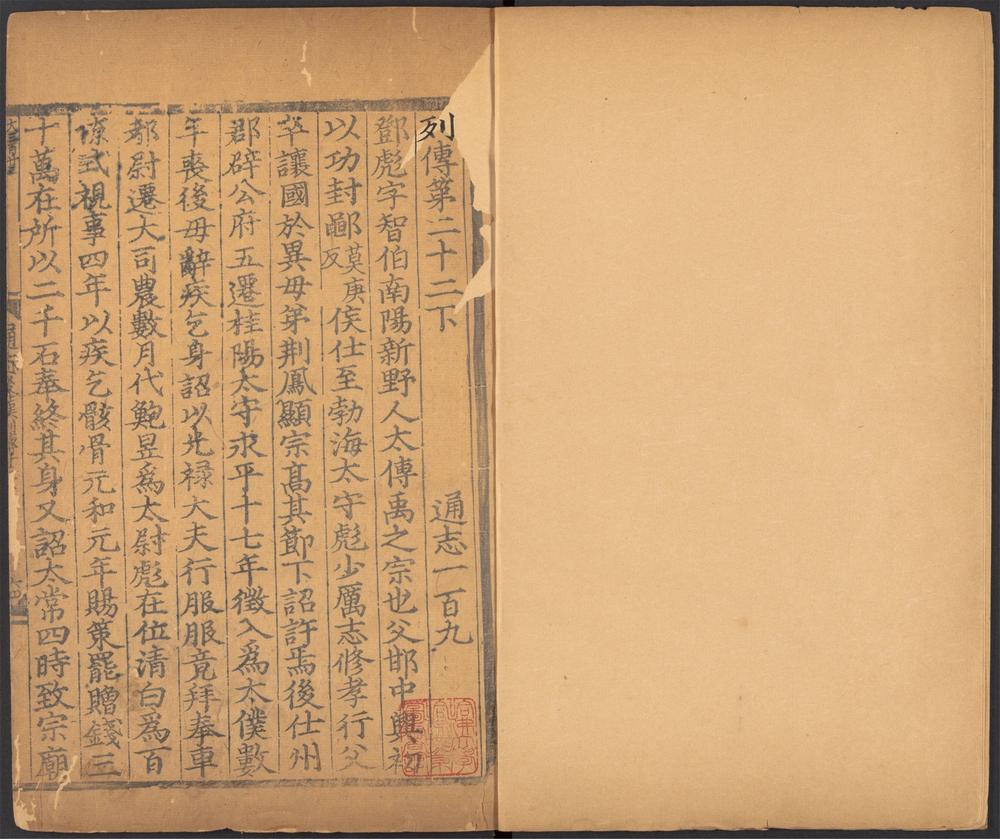 列傳第二十二下 通志一百九
鄧彪字智伯南陽新野人太傳禹之宗也父邯中興初
以功封鄳莫庚反侯仕至勃海太守彪少厲志修孝行父
卒讓國於異毋弟荆鳳顯宗高其節下詔許焉後仕州
郡辟公府五遷桂陽太守永平十七年徵入爲太僕數
年喪後毋辭疾乞身詔以光禄大夫行服服竟拜奉車
都尉遷大司農數月代鮑昱爲太尉彪在位清白爲百
僚式視事四年以疾乞骸骨元和元年賜策罷贈錢三
十萬在所以二千石奉終其身又詔太常四時致宗廟